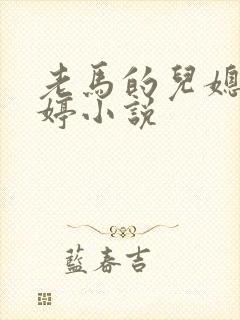 老馬的兒媳
婷小說
藍春吉